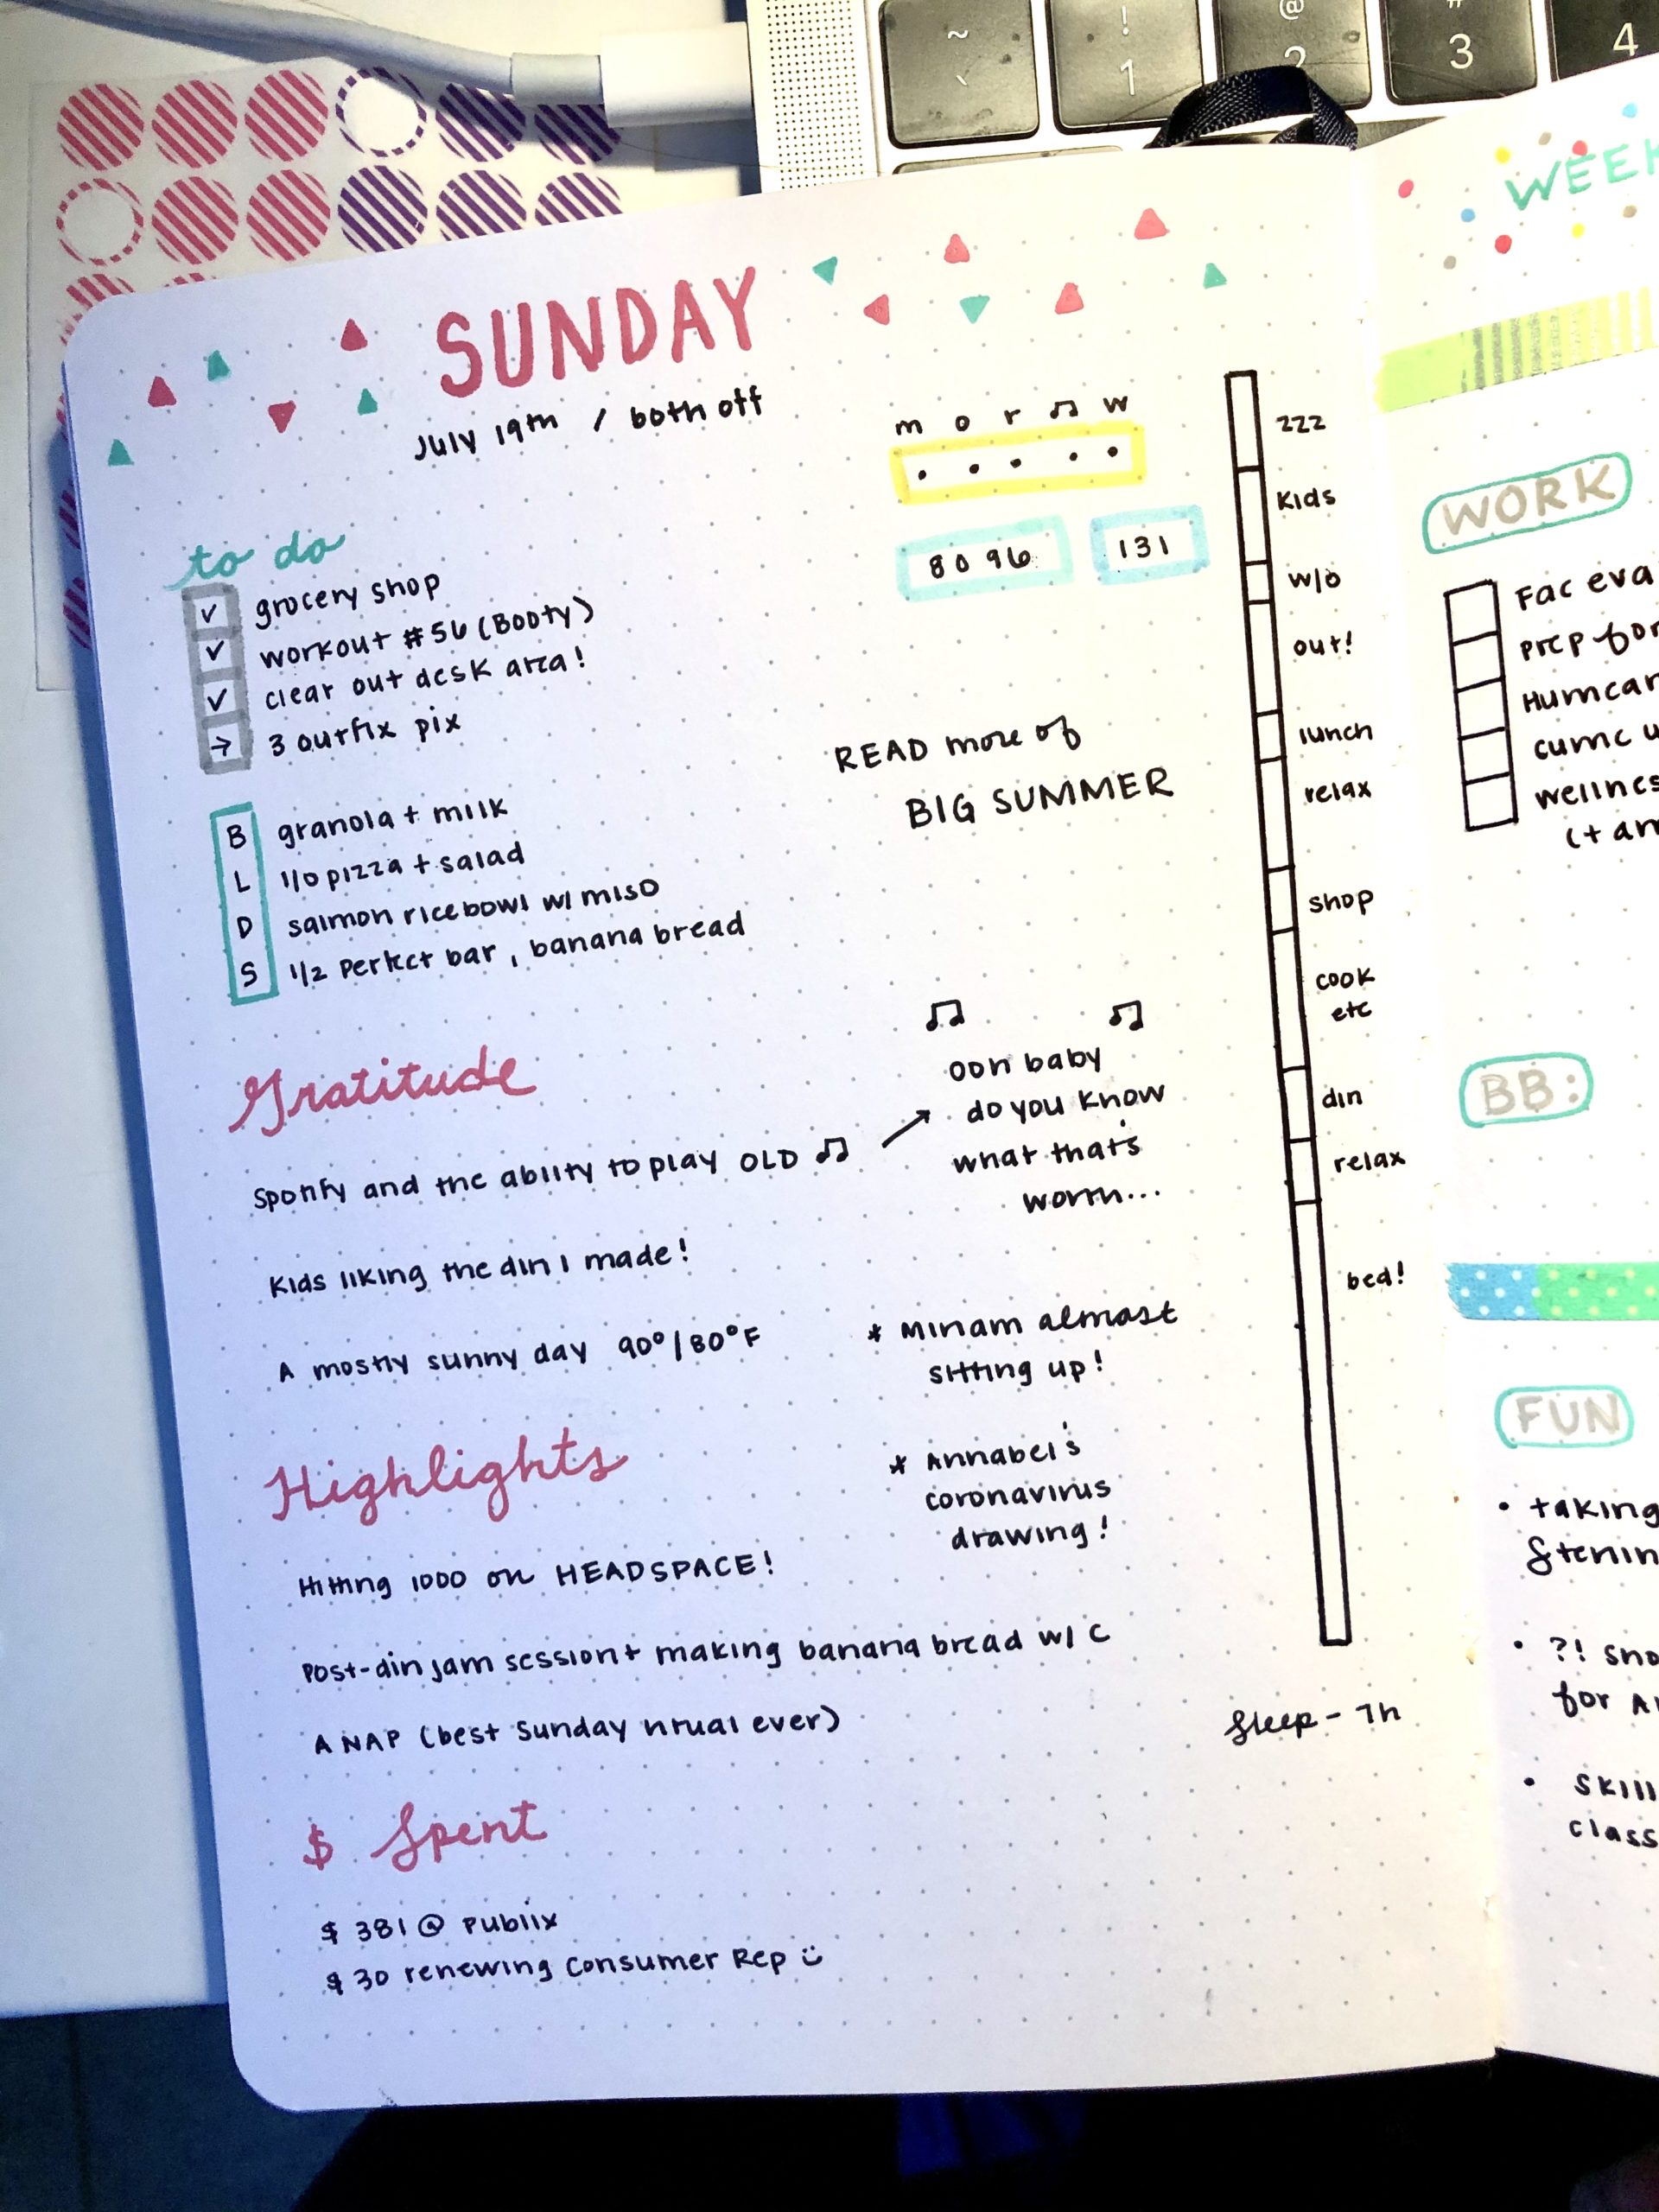 ~
`
!
1
@
2
#
3
4
SUNDAY
July 19th / both off
to do
✓ grocery shop
✓ workout #56 (Booty)
✓ clear out desk area!
→ 3 outfix pix
B granola + milk
L 1/0 pizza + salad
D salmon rice bowl w/ miso
S 1/2 perfect bar, banana bread
m o r ♫ w
• • • • •
80 96
131
READ more of
BIG SUMMER
zzz
kids
w/o
out!
lunch
relax
shop
cook
etc
din
relax
bed!
Sleep - 7h
Gratitude
Spotify and the ability to play OLD ♫ →
♫ ♫
ooh baby
do you know
what that's
worth...
Kids liking the din I made!
A mostly sunny day 90°/80°F
* Miriam almost
sitting up!
* Annabel's
coronavirus
drawing!
Highlights
Hitting 1000 on HEADSPACE!
Post-din jam session + making banana bread w/ C
A NAP (best Sunday ritual ever)
$ Spent
$ 381 @ Publix
$ 30 renewing Consumer Rep
WEEK
WORK
Fac eva
prep for
Humcar
cumc u
wellnes
(+ an
BB:
FUN
• taking
• ?! Sno
for A
• skill
class